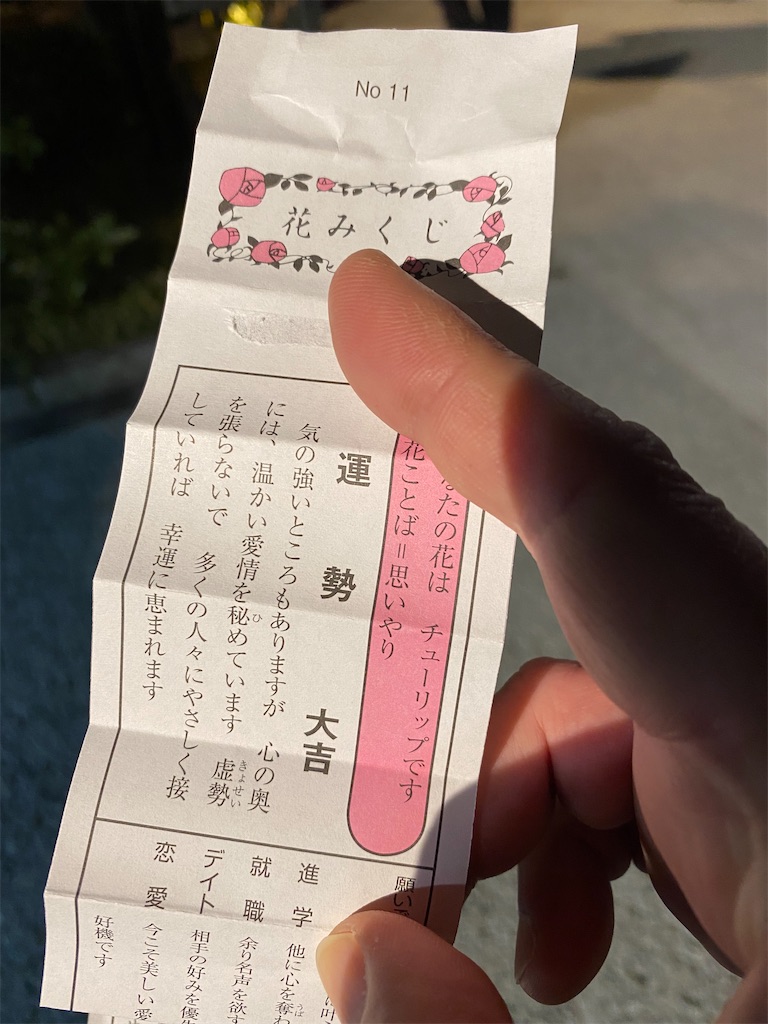 No 11
花みくじ
たの花は チューリップです
花ことば=思いやり
運勢 大吉
気の強いところもありますが 心の奥
には、温かい愛情を秘めています 虚勢
を張らないで 多くの人々にやさしく接
していれば 幸運に恵まれます
ひ
きょせい
願い
進学 他に心を奪わ
うば
就職 余り名声を欲す
デイト 相手の好みを優
恋愛 今こそ美しい愛
好機です